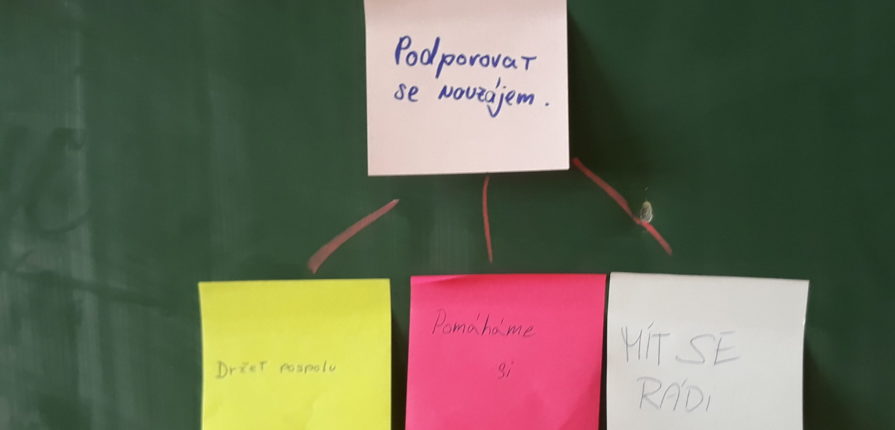 Podporovat
se navzájem.
Držet pospolu
Pomáháme
si
MÍT SE
RÁDI